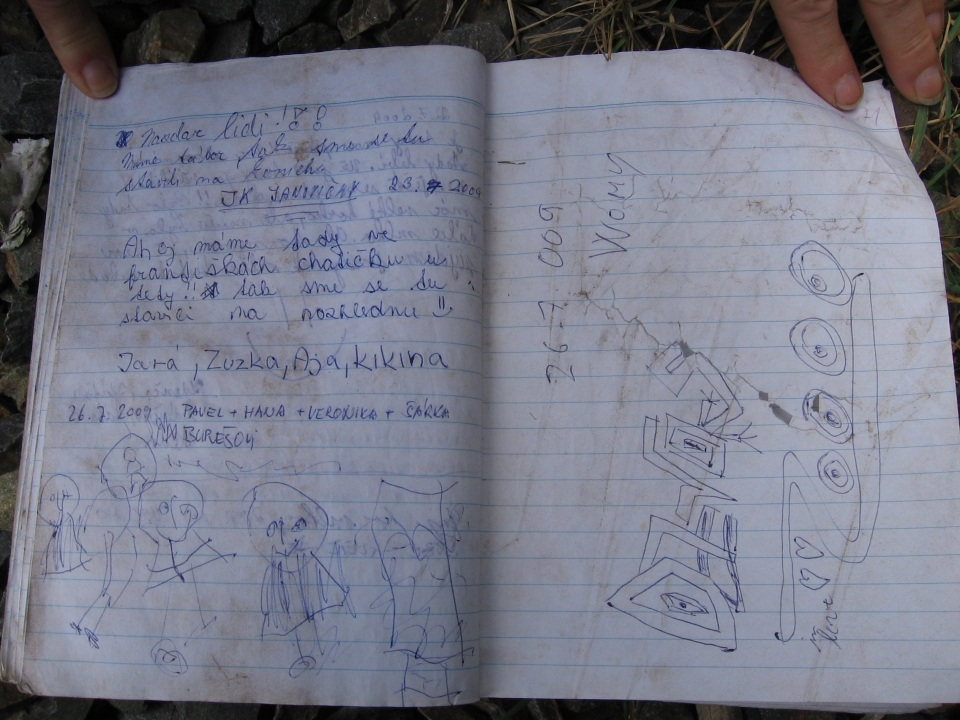 Nazdar lidi!!!
Máme tábor tak sme se tu
stavili na koníčku
JK JANOVIČKY 23. 7. 2009
Ahoj máme tady ve
františkách chatičku u
dedy!! tak sme se tu
stavili na rozhlednu
Jará, Zuzka, Ája, kikina
26. 7. 2009 PAVEL + HANA + VERONIKA + ŠÁRKA
BUREŠOVI
26-7 009
Womy